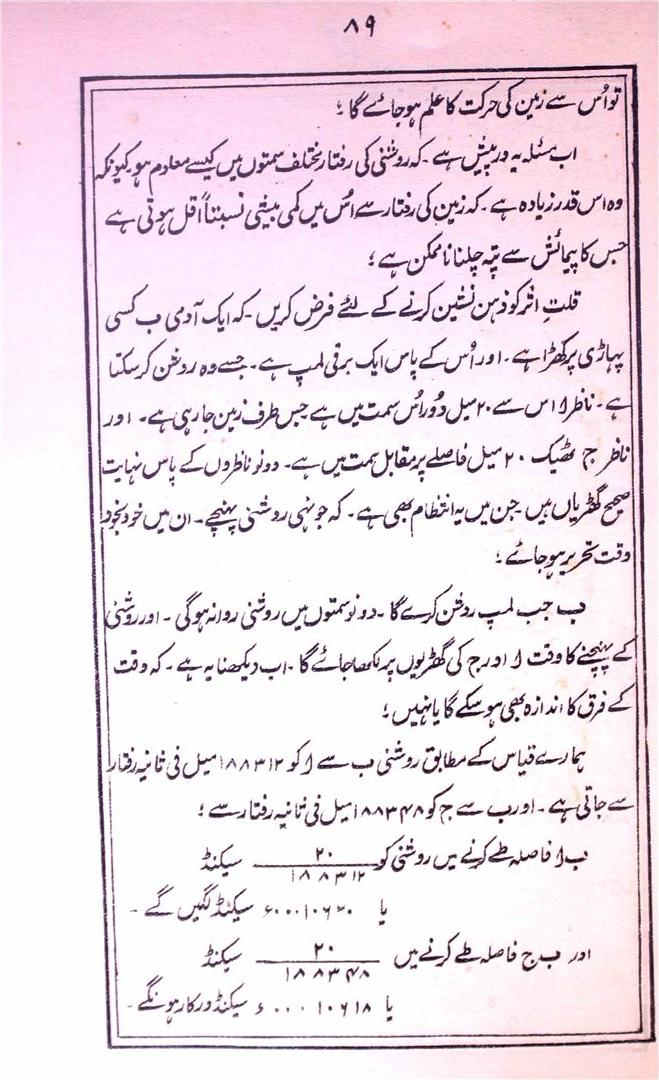 ۸۹
تو اُس سے زمین کی حرکت کا علم ہو جائے گا ؛
اب مسئلہ یہ درپیش ہے ۔ کہ روشنی کی رفتار مختلف سمتوں میں کیسے معلوم ہو ۔ کیونکہ
وہ اس قدر زیادہ ہے ۔ کہ زمین کی رفتار سے اُس میں کمی بیشی نسبتاً اقل ہوتی ہے
جس کا پیمائش سے پتہ چلنا ناممکن ہے ؛
قلتِ اثر کو ذہن نشین کرنے کے لئے فرض کریں ۔ کہ ایک آدمی ب کسی
پہاڑی پر کھڑا ہے ۔ اور اُس کے پاس ایک برقی لمپ ہے ۔ جسے وہ روشن کر سکتا
ہے ۔ ناظر ا اس سے ۲۰ میل دُور اُس سمت میں ہے جس طرف زمین جا رہی ہے ۔ اور
ناظر ج ٹھیک ۲۰ میل فاصلے پر مقابل سمت میں ہے ۔ دونو ناظروں کے پاس نہایت
صحیح گھڑیاں ہیں جن میں یہ انتظام بھی ہے ۔ کہ جونہی روشنی پہنچے ۔ ان میں خودبخود
وقت تحریر ہو جائے ؛
ب جب لمپ روشن کرے گا ۔ دونو سمتوں میں روشنی روانہ ہوگی ۔ اور روشنی
کے پہنچنے کا وقت ا اور ج کی گھڑیوں پر لکھا جائے گا ۔ اب دیکھنا یہ ہے ۔ کہ وقت
کے فرق کا اندازہ بھی ہو سکے گا یا نہیں ؛
ہمارے قیاس کے مطابق روشنی ب سے ا کو ۱۸۸۳۱۲ میل فی ثانیہ رفتار
سے جاتی ہے ۔ اور ب سے ج کو ۱۸۸۳۴۸ میل فی ثانیہ رفتار سے ؛
ب ا فاصلہ طے کرنے میں روشنی کو ۲۰ / ۱۸۸۳۱۲ سیکنڈ
یا ۰۰۰۱۰۶۲۰ء سیکنڈ لگیں گے ۔
اور ب ج فاصلہ طے کرنے میں ۲۰ / ۱۸۸۳۴۸ سیکنڈ
یا ۰۰۰۱۰۶۱۸ء سیکنڈ درکار ہونگے ۔